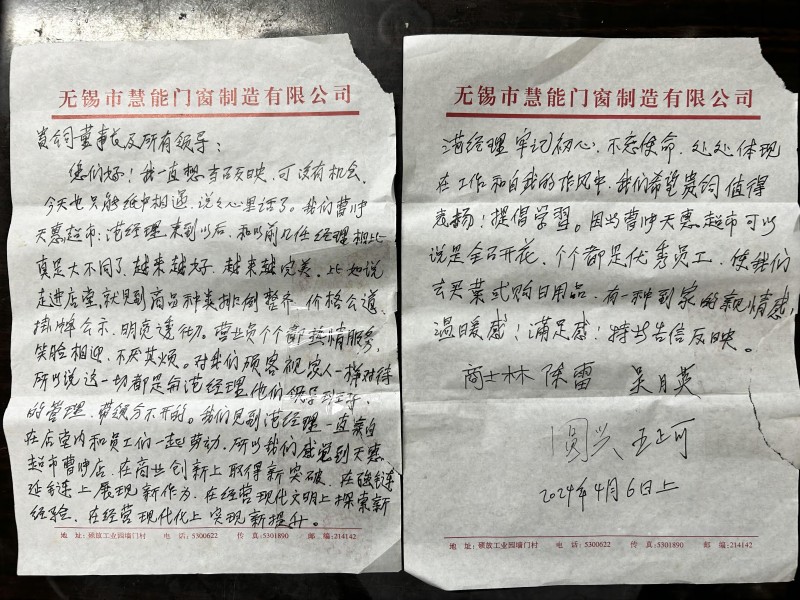 无锡市慧能门窗制造有限公司
贵司董事长及所有领导:
您们好!我一直想书召反映,可没有机会,
今天也只能纸中相通,说说心里话了。我们曹冲
天惠超市:范经理来到以后,和以前几任经理相比
真是大不同了,越来越好,越来越完美,比如说
走进店堂,就见到商品种类排例整齐,价格公道,
挂牌公示,明亮透彻。营业员个个都热情服务,
笑脸相迎,不厌其烦。对我们顾客视家人一样对待
所以说这一切都是有范经理他们领导班子,
的管理,带领分不开的。我们见到范经理一直亲自
在店堂内和员工们一起劳动,所以我们感觉到天惠
超市曹冲店,在商业创新上取得新突破,在强链
延链上展现新作为,在经营现代文明上探索新
经验,在经营现代化上实现新提升。
地 址:硕放工业园墙门村 电 话:5300622 传 真:5301890 邮 编:214142
无锡市慧能门窗制造有限公司
范经理牢记初心,不忘使命,处处体现
在工作和自我的作风中,我们希望贵司值得
表扬!提倡学習。因为曹冲天惠超市可以
说是全召开花,个个都是优秀员工,使我们
去买菜或购日用品,有一种到家的亲情感!
温暖感!满足感!特此告信反映。
陈雷 吴月英
王正可
2024年4月6日上
地 址:硕放工业园墙门村 电 话:5300622 传 真:5301890 邮 编:214142